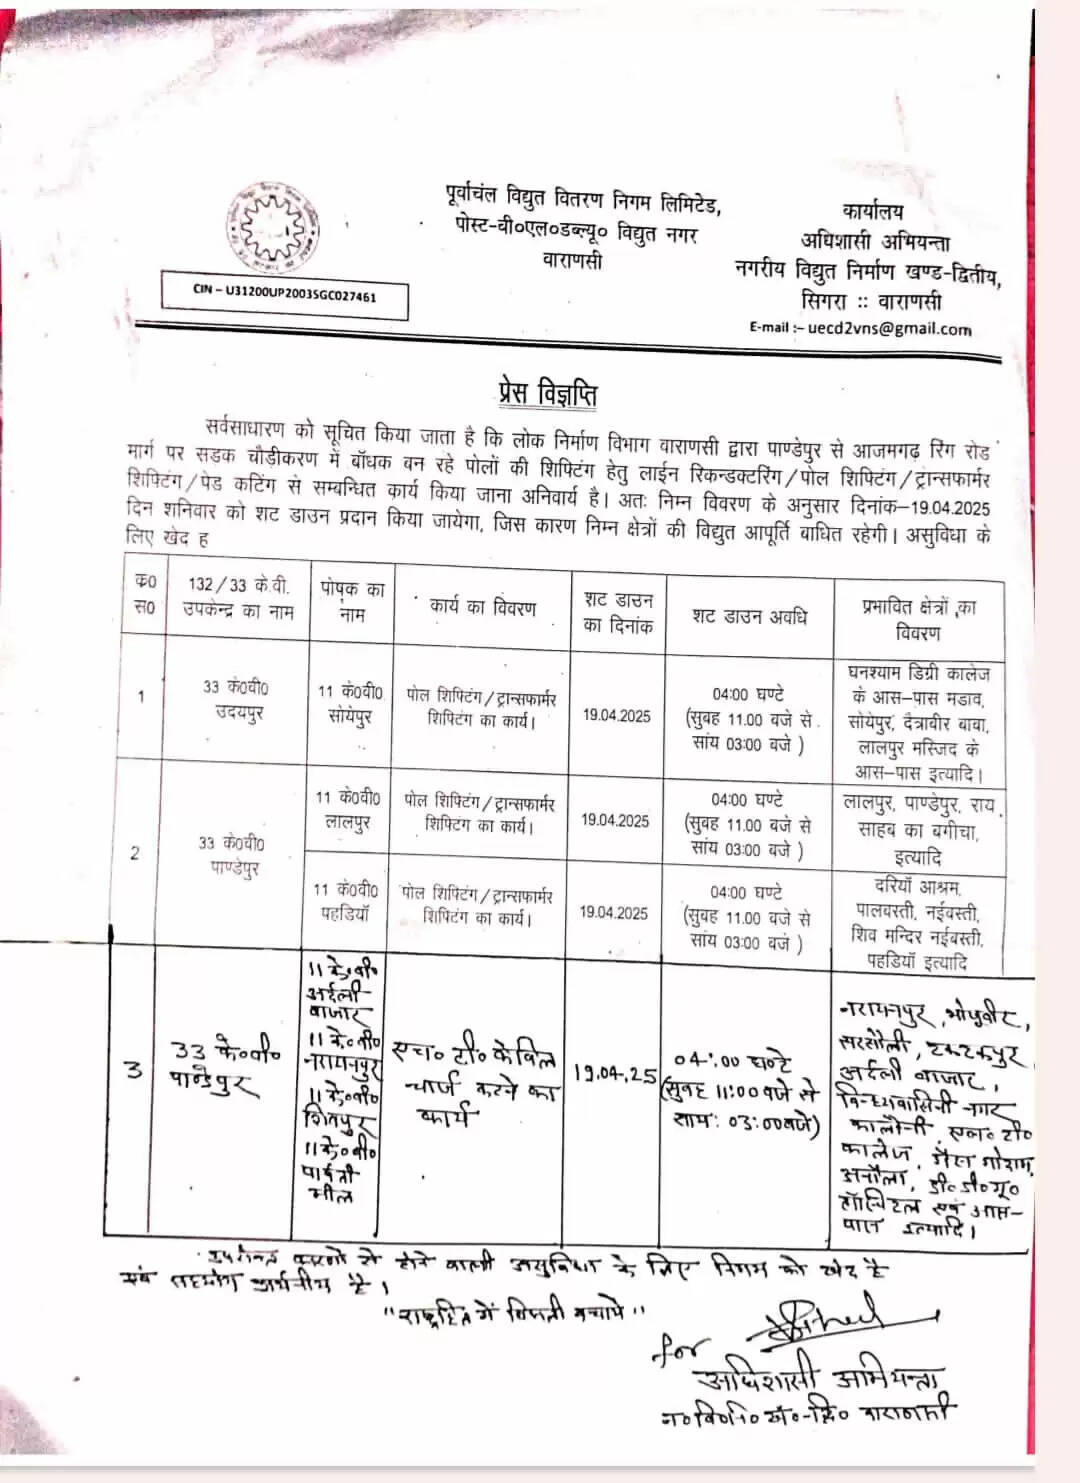 पूर्वाचंल विद्युत वितरण निगम लिमिटेड,
पोस्ट-बी०एल०डब्ल्यू० विद्युत नगर
वाराणसी
कार्यालय
अधिशासी अभियन्ता
नगरीय विद्युत निर्माण खण्ड-द्वितीय,
सिगरा :: वाराणसी
E-mail :- uecd2vns@gmail.com
CIN – U31200UP2003SGC027461
प्रेस विज्ञप्ति
सर्वसाधारण को सूचित किया जाता है कि लोक निर्माण विभाग वाराणसी द्वारा पाण्डेपुर से आजमगढ़ रिंग रोड
मार्ग पर सड़क चौड़ीकरण में बॉधक बन रहे पोलों की शिफ्टिंग हेतु लाईन रिकन्डक्टरिंग/पोल शिफ्टिंग/ट्रान्सफार्मर
शिफ्टिंग/पेड कटिंग से सम्बन्धित कार्य किया जाना अनिवार्य है। अतः निम्न विवरण के अनुसार दिनांक-19.04.2025
दिन शनिवार को शट डाउन प्रदान किया जायेगा, जिस कारण निम्न क्षेत्रों की विद्युत आपूर्ति बाधित रहेगी। असुविधा के
लिए खेद ह
क०
स०
132/33 के.वी.
उपकेन्द्र का नाम
पोषक का
नाम
कार्य का विवरण
शट डाउन
का दिनांक
शट डाउन अवधि
प्रभावित क्षेत्रों का
विवरण
1
33 के०वी०
उदयपुर
11 के०वी०
सोयेपुर
पोल शिफ्टिंग/ट्रान्सफार्मर
शिफ्टिंग का कार्य।
19.04.2025
04:00 घण्टे
(सुबह 11.00 बजे से
सांय 03:00 बजे)
घनश्याम डिग्री कालेज
के आस-पास मडाव,
सोयेपुर, दैत्रावीर बाबा,
लालपुर मस्जिद के
आस-पास इत्यादि।
2
33 के०वी०
पाण्डेपुर
11 के०वी०
लालपुर
पोल शिफ्टिंग/ट्रान्सफार्मर
शिफ्टिंग का कार्य।
19.04.2025
04:00 घण्टे
(सुबह 11.00 बजे से
सांय 03:00 बजे)
लालपुर, पाण्डेपुर, राय
साहब का बगीचा,
इत्यादि
11 के०वी०
पहडियॉ
पोल शिफ्टिंग/ट्रान्सफार्मर
शिफ्टिंग का कार्य।
19.04.2025
04:00 घण्टे
(सुबह 11.00 बजे से
सांय 03:00 बजे)
दरियॉ आश्रम,
पालबस्ती, नईबस्ती,
शिव मन्दिर नईबस्ती,
पहडियॉ इत्यादि
3
33 के०वी०
पाण्डेपुर
11 के०वी०
अर्दली
बाजार
11 के०वी०
नरायनपुर
11 के०वी०
शिवपुर
11 के०वी०
पार्वती
मील
एच० टी० केबिल
चार्ज करने का
कार्य
19.04.25
04:00 घण्टे
(सुबह 11:00 बजे से
सायः 03:00 बजे)
नरायनपुर, भोजूबीर,
सरसौली, टकटकपुर
अर्दली बाजार,
विन्ध्यवासिनी नगर
कालौनी, एल० टी०
कालेज,
अनौला, डी० डी० यू०
हॉस्पिटल एवं आस-
पास इत्यादि।
उपरोक्त कारणों से होने वाली असुविधा के लिए निगम को खेद है
एवं सहयोग प्रार्थनीय है।
"राष्ट्रहित में बिजली बचाये"
for
अधिशासी अभियन्ता
न०वि०नि०खं०-द्वि० वाराणसी